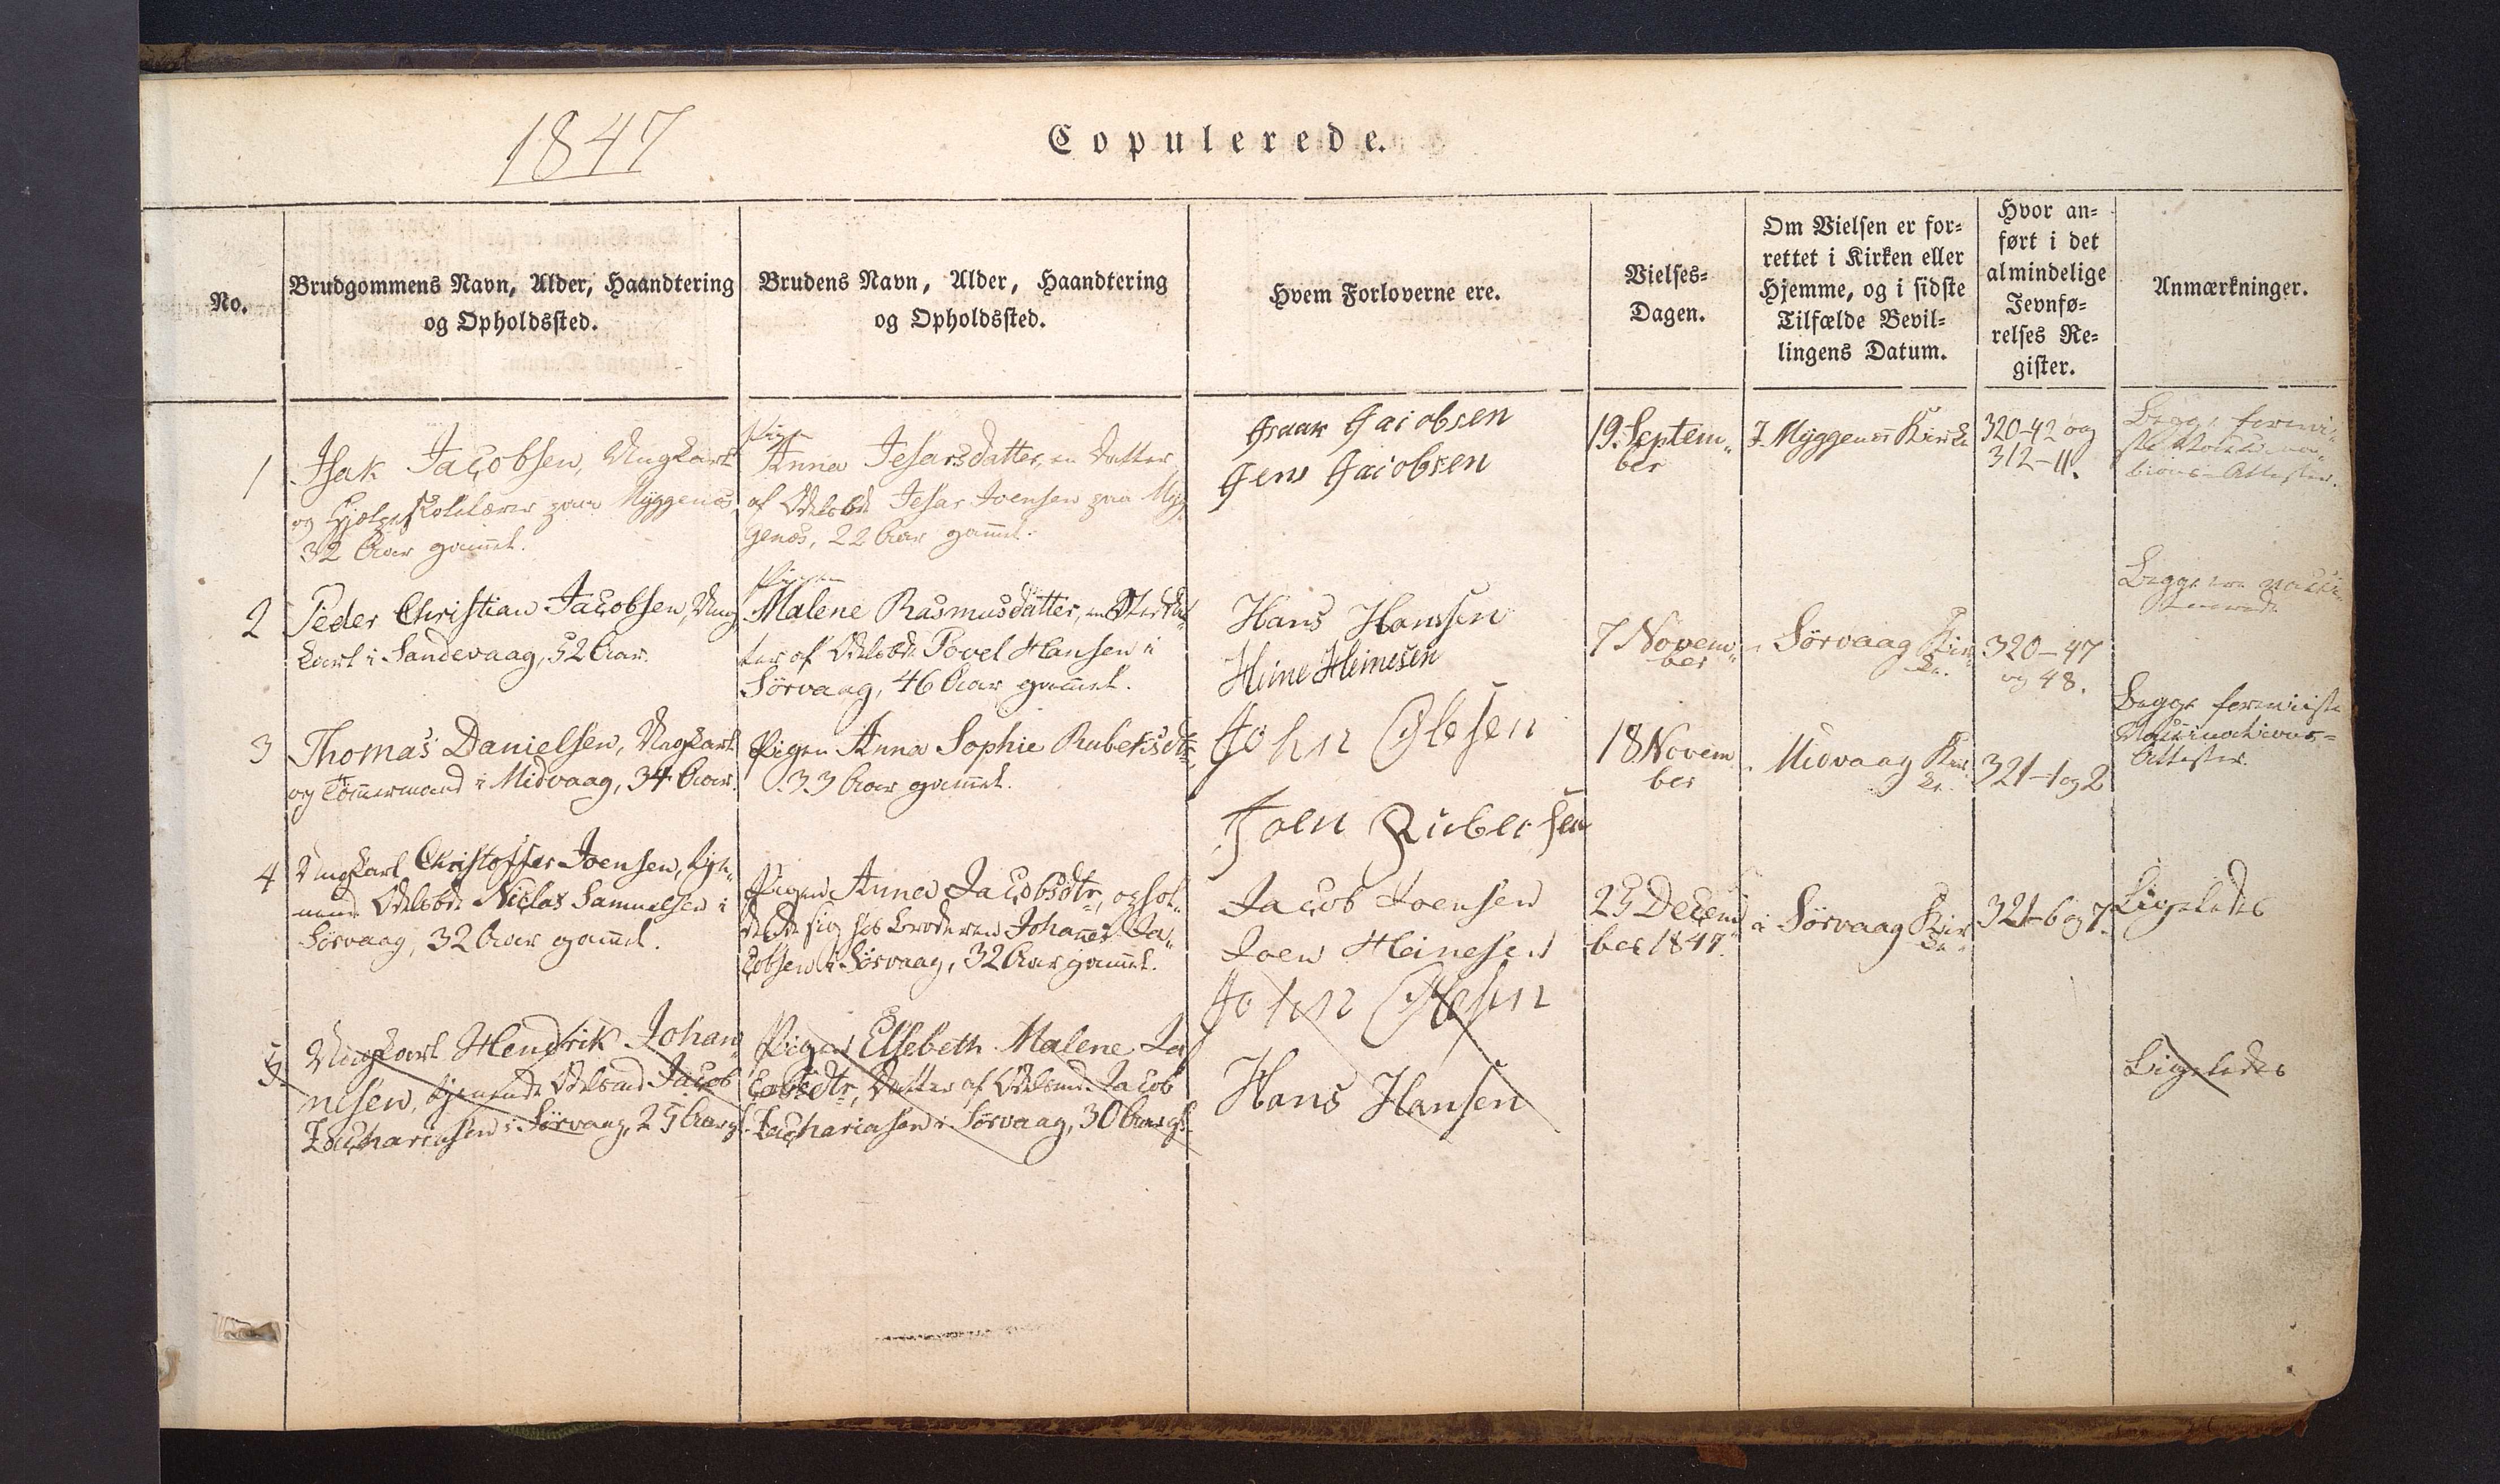 1847
Copulerede.
No.
Brudgommens Navn, Alder, Haandtering
og Opholdssted.
Brudens Navn, Alder, Haandtering
og Opholdssted.
Hvem Forloverne ere.
Vielses-
Dagen.
Om Vielsen er for-
rettet i Kirken eller
Hjemme, og i sidste
Tilfælde Bevil-
lingens Datum.
Hvor an-
ført i det
almindelige
Jevnfø-
relses Re-
gister.
Anmærkninger.
1
Isak Jacobsen, Ungkarl
og Hjælpeskolelærer paa Myggenæs,
32 Aar gammel.
Pigen
Anna Jesarsdatter, en Datter
af Odelsbd. Jesar Joensen paa Myg-
genæs, 22 Aar gammel.
Isaak Jacobsen
Jens Jacobsen
19. Septem-
ber
I Myggenæs Kirke
320-42 og
312-11.
Begge foreviste
Vaccinations-Attester.
2
Peder Christian Jacobsen, Ung-
karl i Sandevaag, 52 Aar.
Pigen
Malene Rasmusdatter, en
ter af Odelsbd. Povel Hansen i
Sörvaag, 46 Aar gammel.
Hans Hanssen
Heine Heinesen
7 Novem-
ber
i Sörvaag Kir-
ke.
320-47
og 48.
Begge ere vacci-
nerede
3
Thomas Danielsen, Ungkarl
og Tömmermand i Midvaag, 34 Aar.
Pigen Anna Sophie Rubeksdtr,
33 Aar gammel.
John Olesen
Joen Rubeksen
18 Novem-
ber
i Midvaag Kir-
ke.
321-1 og 2
Begge foreviste
Vaccinations-
Attester.
4
Ungkarl Christoffer Joensen, tje-
nende Odelsbd. Niclas Samuelsen i
Sörvaag, 32 Aar gammel.
Pigen Anna Jacobsdtr, ophol-
dende sig hos Broderen Johannes Ja-
cobsen i Sörvaag, 32 Aar gammel.
Jacob Joensen
Joen Heinesen
25 Decem-
ber 1847.
i Sörvaag Kir-
ke
321-6 og 7.
Ligeledes
5.
Ungkarl Hendrik Johan-
nesen, tjenende Odelsmd. Jacob
Zachariasen i Sörvaag, 25 Aar gl.
Pigen Elsebeth Malene Ja-
cobsdtr, Datter af Odelsmd. Jacob
Zachariasen i Sörvaag, 30 Aar gl.
John Olesen
Hans Hansen
Ligeledes